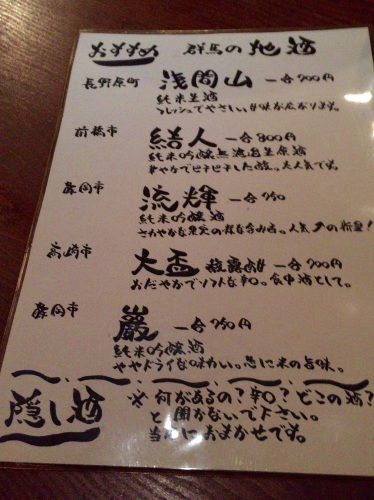 おすすめ 群馬の地酒
長野原町 浅間山 一合700円
純米生酒
フレッシュでやさしい甘味が広がります。
前橋市 結人 一合800円
純米吟醸無濾過生原酒
華やかでピチピチした酸。大人気です。
藤岡市 流輝 一合750
純米吟醸酒
さわやかな果実の様な含み香。人気↗の新星!
高崎市 大盃 一合700円
おだやかでソフトな辛口。食中酒として。
藤岡市 巖 一合750円
純米吟醸酒
ややドライな味わい。急に米の旨味。
隠し酒 ※何があるの?辛口?どこの酒?
と聞かないで下さい。
おまかせです。